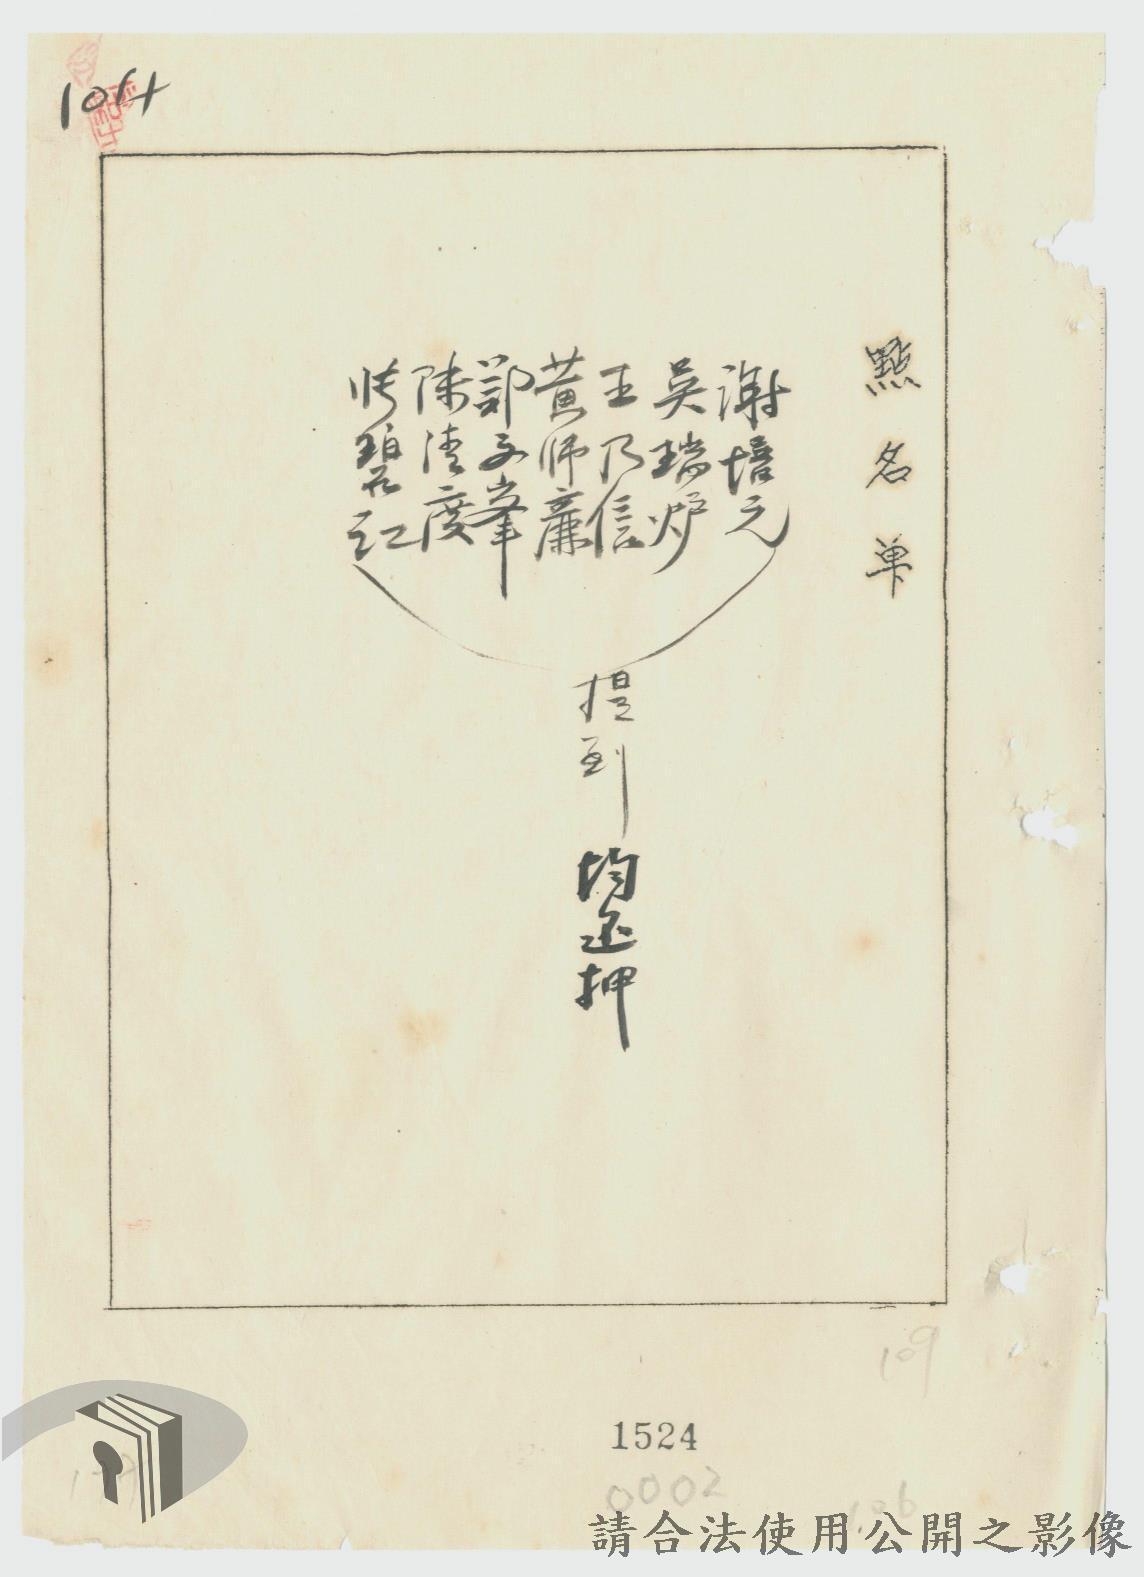 點名單
謝培元
吳瑞炉
王乃信
黃師廉
鄒文峯
陳清度
張碧江
提到
均還押
1524
0002
109
106
請合法使用公開之影像